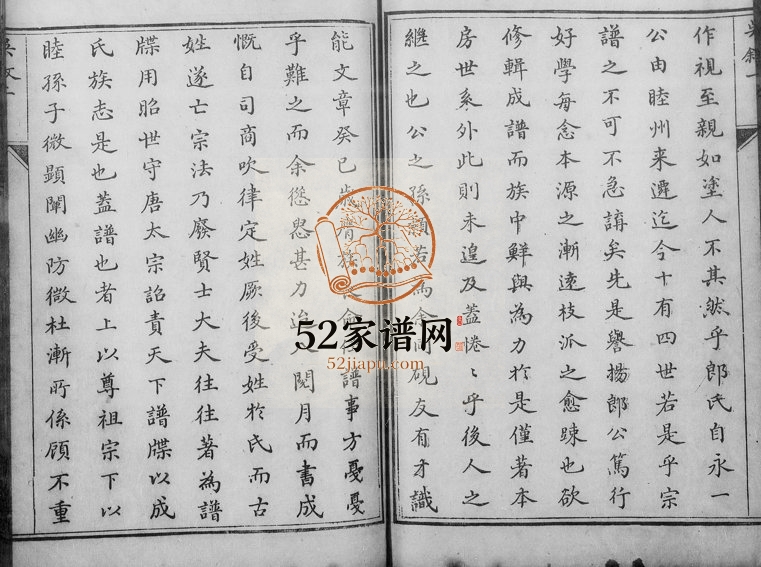 作視至親如塗人不其然乎郎氏自永一
公由睦州来遷迄今十有四世若是乎宗
譜之不可不急講矣先是譽揚郎公篤行
好學每念本源之漸遠枝派之愈踈也欲
修輯成譜而族中鮮與為力於是僅著本
房世系外此則未遑及蓋惓〻乎後人之
繼之也公之孫顯若為余同硯友有才識
能文章癸巳歲譜事方憂憂
乎難之而余慫恿甚力迨閱月而書成
慨自司商吹律定姓厥後受姓於氏而古
姓遂亡宗法乃廢賢士大夫往往著為譜
牒用昭世守唐太宗詔責天下譜牒以成
氏族志是也蓋譜也者上以尊祖宗下以
睦孫子微顯闡幽防微杜漸所係顧不重
52家谱网
52jiapu.com